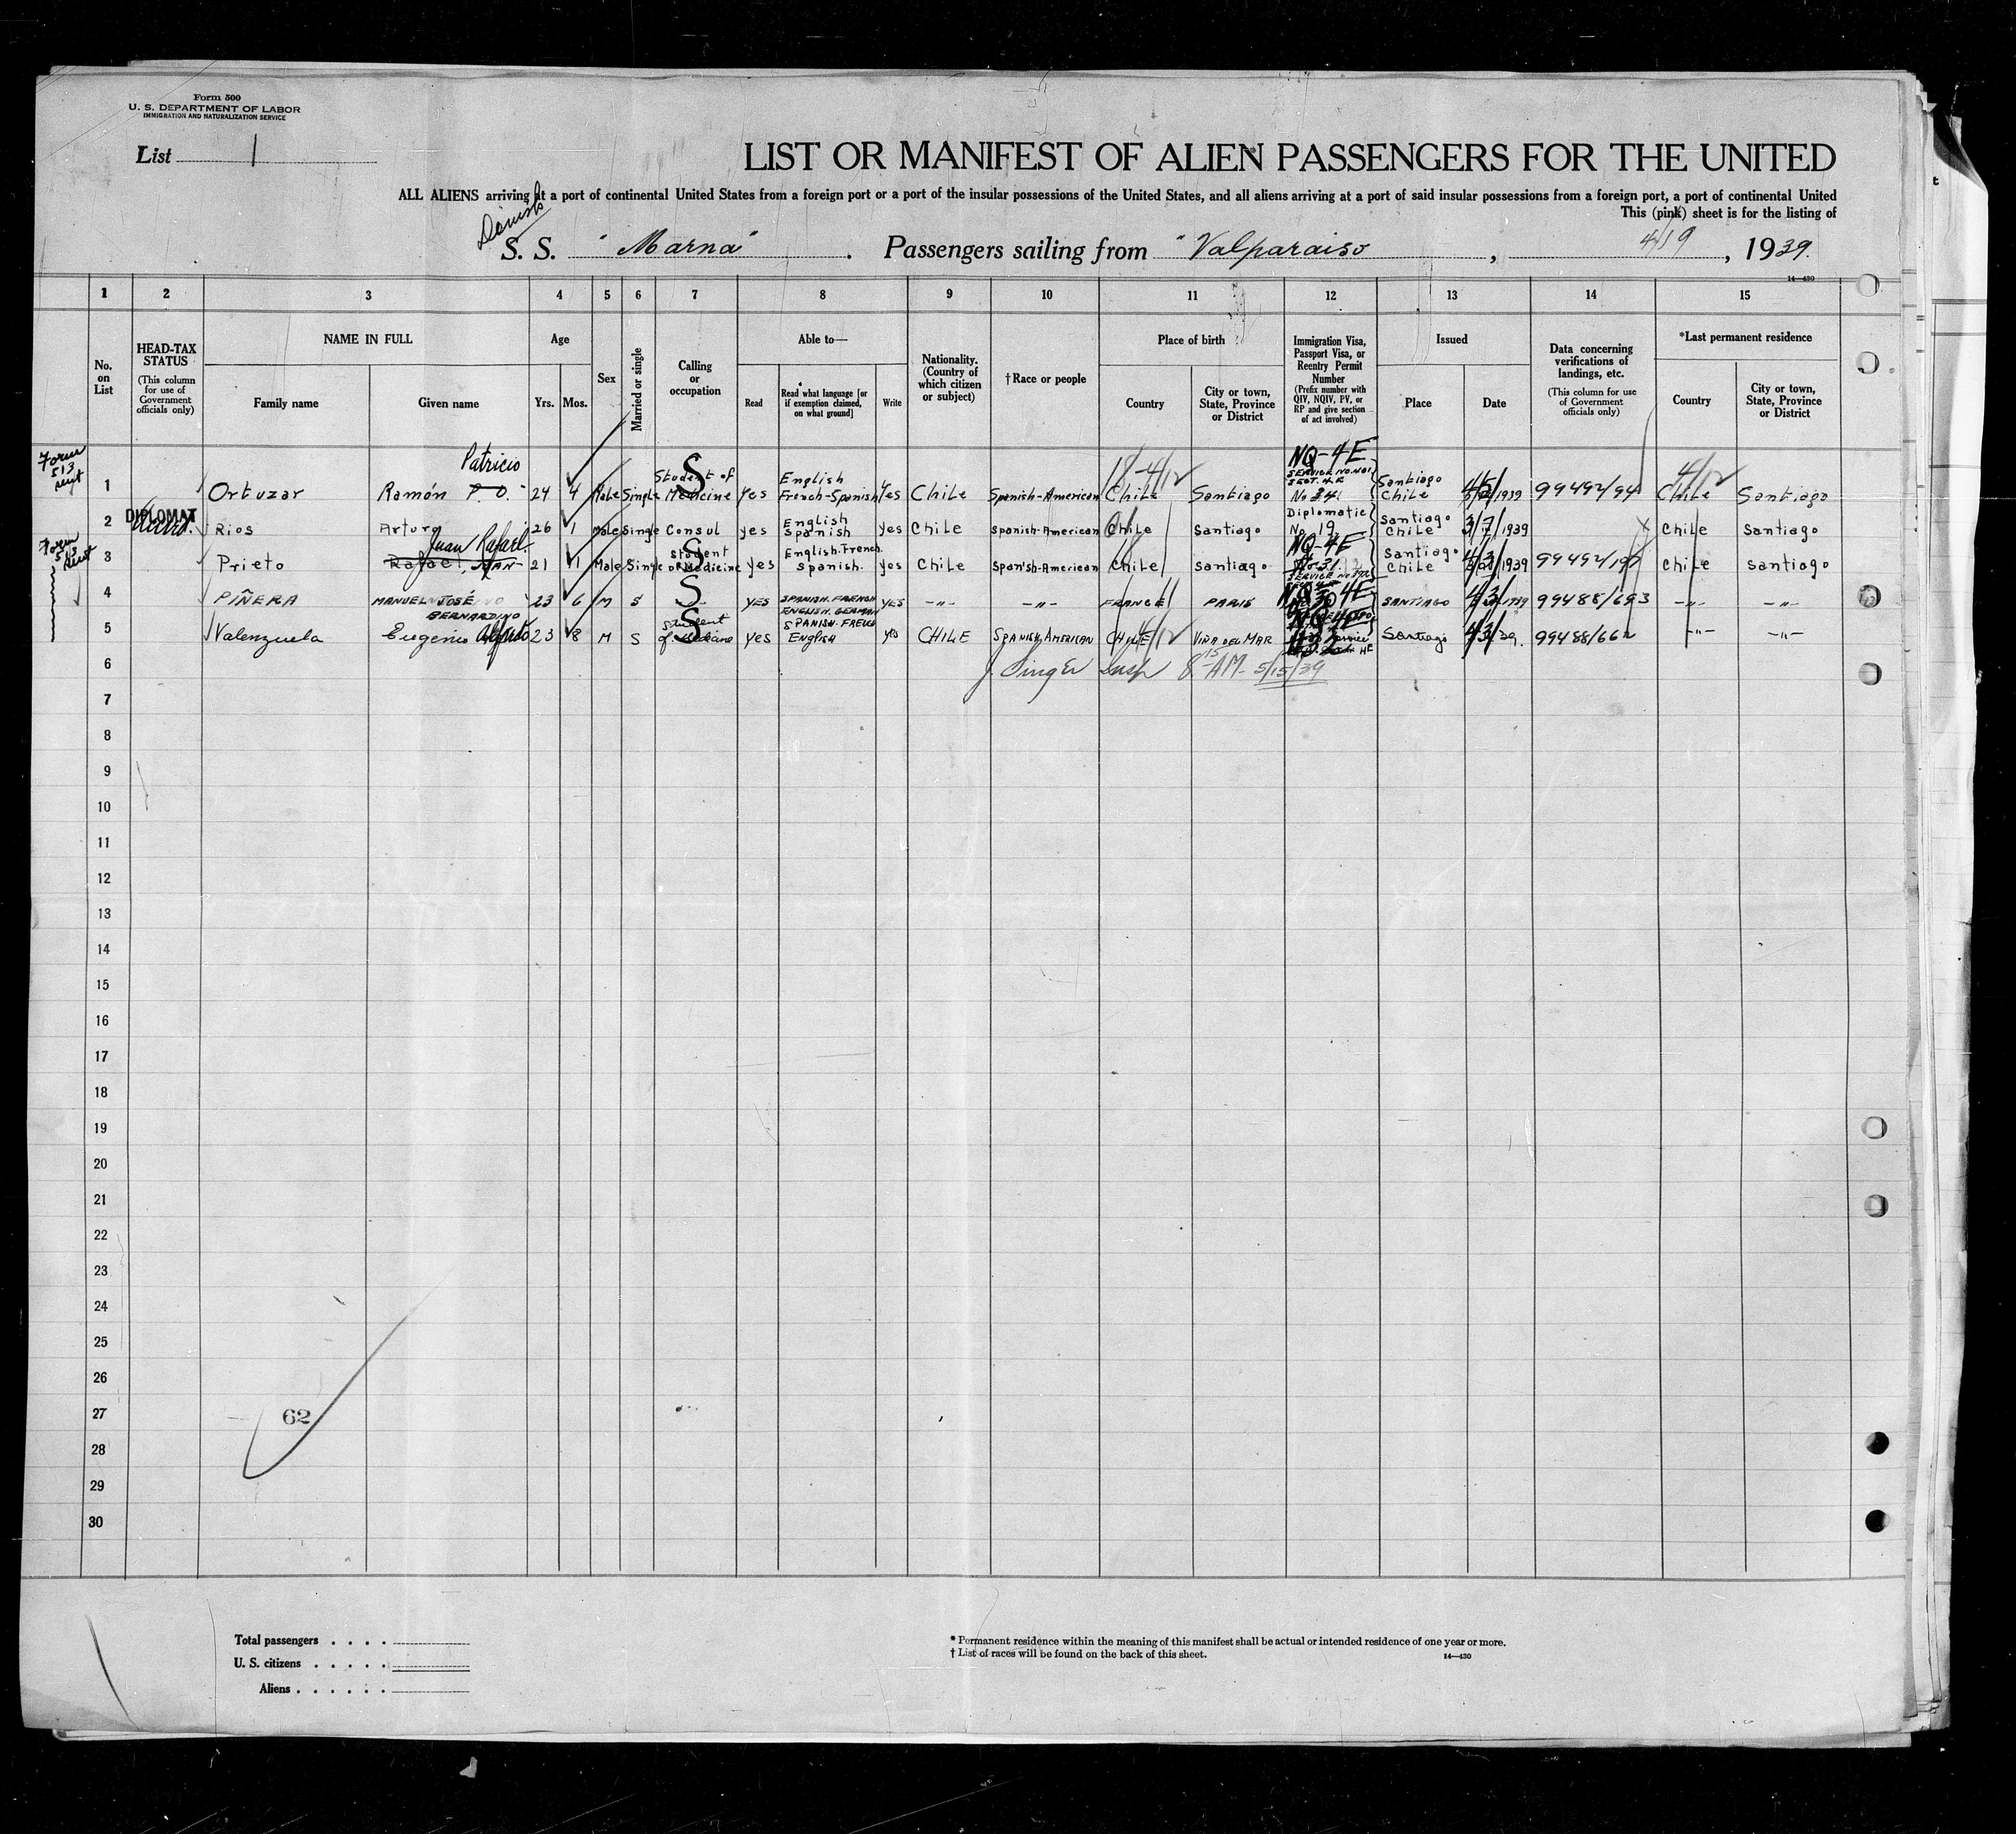 Form 500
U. S. DEPARTMENT OF LABOR
IMMIGRATION AND NATURALIZATION SERVICE
List 1
LIST OR MANIFEST OF ALIEN PASSENGERS FOR THE UNITED
ALL ALIENS arriving at a port of continental United States from a foreign port or a port of the insular possessions of the United States, and all aliens arriving at a port of said insular possessions from a foreign port, a port of continental United
This (pink) sheet is for the listing of
Danish
S. S. "Marna". Passengers sailing from "Valparaiso, 4/19, 1939.
14—430
1 2 3 4 5 6 7 8 9 10 11 12 13 14 15
No. on List
HEAD-TAX STATUS (This column for use of Government officials only)
NAME IN FULL
Family name
Given name
Age
Yrs.
Mos.
Sex
Married or single
Calling or occupation
Able to—
Read
Read what language [or if exemption claimed, on what ground]
Write
Nationality. (Country of which citizen or subject)
†Race or people
Place of birth
Country
City or town, State, Province or District
Immigration Visa, Passport Visa, or Reentry Permit Number (Prefix number with QIV, NQIV, PV, or RP and give section of act involved)
Issued
Place
Date
Data concerning verifications of landings, etc. (This column for use of Government officials only)
*Last permanent residence
Country
City or town, State, Province or District
Form 513 sent
1 Ortuzar Ramón P. O. Patricio 24 4 Male Single Student of Medicine S yes English French-Spanish yes Chile Spanish-American Chile Santiago NQ-4E No 34 Santiago Chile 4/5/1939 99492/94 Chile 4/12 Santiago
2 DIPLOMAT Rios Arturo 26 1 Male Single Consul yes English Spanish yes Chile Spanish-American Chile Santiago Diplomatic No 19 Santiago Chile 3/7/1939 Chile Santiago
Form 513 sent
3 Prieto Rafael, Juan Juan Rafael 21 1 Male Single Student of Medicine S yes English-French Spanish. yes Chile Spanish-American Chile Santiago NQ-4E No 31 Santiago Chile 4/3/1939 99492/197 Chile Santiago
4 PIÑERA MANUEL JOSÉ BERNARDINO 23 6 M S S YES SPANISH-FRENCH ENGLISH-GERMAN YES —"— —"— FRANCE PARIS NQ 4E SANTIAGO 4/3/1939 99488/693 —"— —"—
5 Valenzuela Eugenio Alfredo 23 8 M S Student of Medicine S yes SPANISH-FRENCH ENGLISH yes CHILE SPANISH, AMERICAN CHILE 4/12 VIÑA DEL MAR NQ 4E Santiago 4/3/39. 99488/662 —"— —"—
6 J. Singer Insp 8 15 AM - 5/15/39
7
8
9
10
11
12
13
14
15
16
17
18
19
20
21
22
23
24
25
26
27
28
29
30
62
Total passengers . . . .
U. S. citizens . . . . .
Aliens . . . . . .
* Permanent residence within the meaning of this manifest shall be actual or intended residence of one year or more.
† List of races will be found on the back of this sheet.
14—430